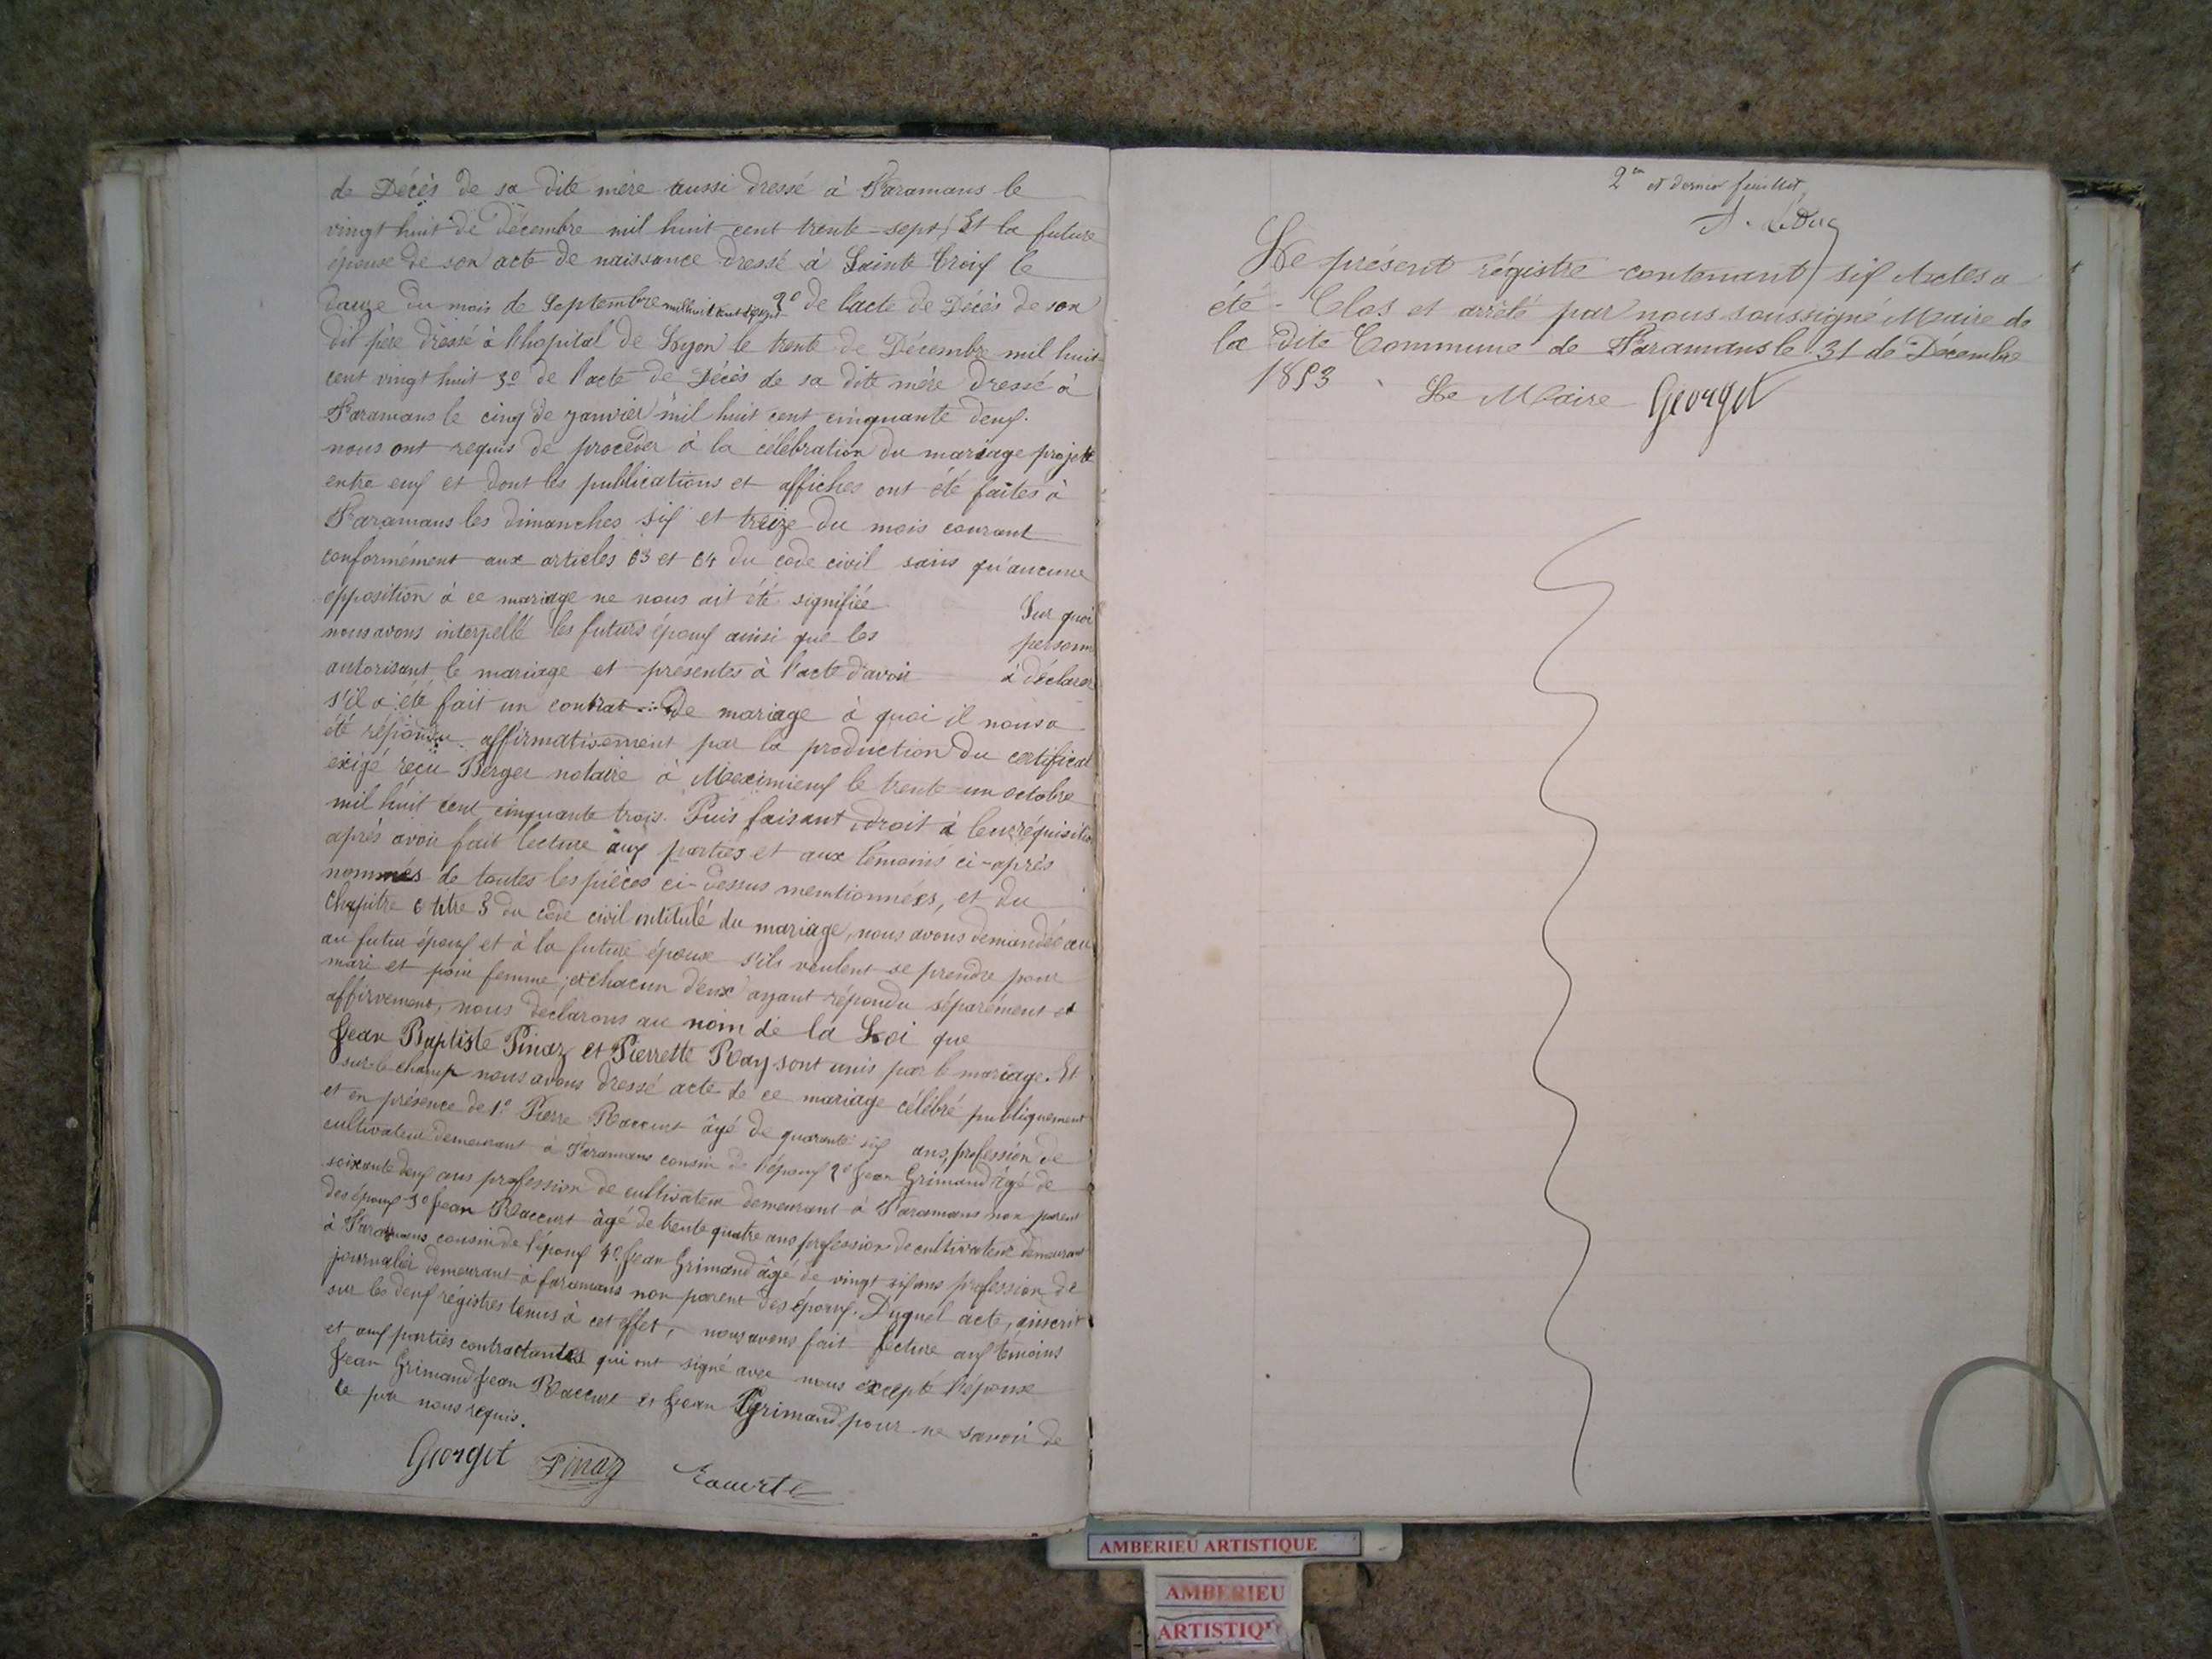 de Décès de sa dite mère aussi dressé à Faramans le
vingt huit de Décembre mil huit cent trente-sept, Et la future
épouse de son acte de naissance dressé à Sainte Croix le
douze du mois de Septembre mil huit cent 2° de l'acte de Décès de son
dit père dressé à l'hopital de Lyon le trente de Décembre mil huit
cent vingt huit 3° de l'acte de Décès de sa dite mère dressé à
Faramans le cinq de janvier mil huit cent cinquante deux.
nous ont requis de procéder à la célébration du mariage projeté
entre eux et dont les publications et affiches ont été faites à
Faramans les dimanches six et treize du mois courant
conformément aux articles 63 et 64 du code civil sans qu'aucune
opposition à ce mariage ne nous ait été signifiée Sur quoi
nous avons interpellé les futurs époux ainsi que les personn
autorisant le mariage et présentes à l'acte d'avoir à déclarer
s'il a été fait un contrat de mariage à quoi il nous a
été répondu affirmativement par la production du certificat
exigé reçu Berger notaire à Meximieux le trente-un octobre
mil huit cent cinquante trois. Puis faisant droit à leur réquisition
après avoir fait lecture aux parties et aux témoins ci-après
nommés de toutes les pièces ci-dessus mentionnées, et du
chapitre 6 titre 5 du code civil intitulé du mariage, nous avons demandé au
au futur époux et à la future épouse s'ils veulent se prendre pour
mari et pour femme; et chacun d'eux ayant répondu séparément et
affirvement, nous déclarons au nom de la Loi que
Jean Baptiste Pinaz et Pierrette Ray sont unis par le mariage. Et
sur le champ nous avons dressé acte de ce mariage célébré publiquement
et en présence de 1° Pierre Raccurt âgé de quarante six ans, profession de
cultivateur demeurant à Faramans cousin de l'époux 2° Jean Grimand âgé de
soixante deux ans profession de cultivateur demeurant à Faramans non parent
des époux 3° Jean Raccurt âgé de trente quatre ans profession de cultivateur demeurant
à Faramans cousin de l'époux 4° Jean Grimand âgé de vingt six ans profession de
journalier demeurant à faramans non parent des époux. Duquel acte, inscrit
sur les deux régistres tenus à cet effet, nous avons fait lecture aux témoins
et aux parties contractantes qui ont signé avec nous excepté l'épouse
Jean Grimand Jean Raccurt et Jean Grimand pour ne savoir de
ce par nous requis.
Georget Pinaz Racurt
2em et dernier feuillet
Le présent régistre contenant six Actes a
été Clos et arrêté par nous soussigné Maire de
la dite Commune de Faramans le 31 de Décembre
1853 Le Maire Georget
AMBERIEU ARTISTIQUE
AMBERIEU
ARTISTIQU